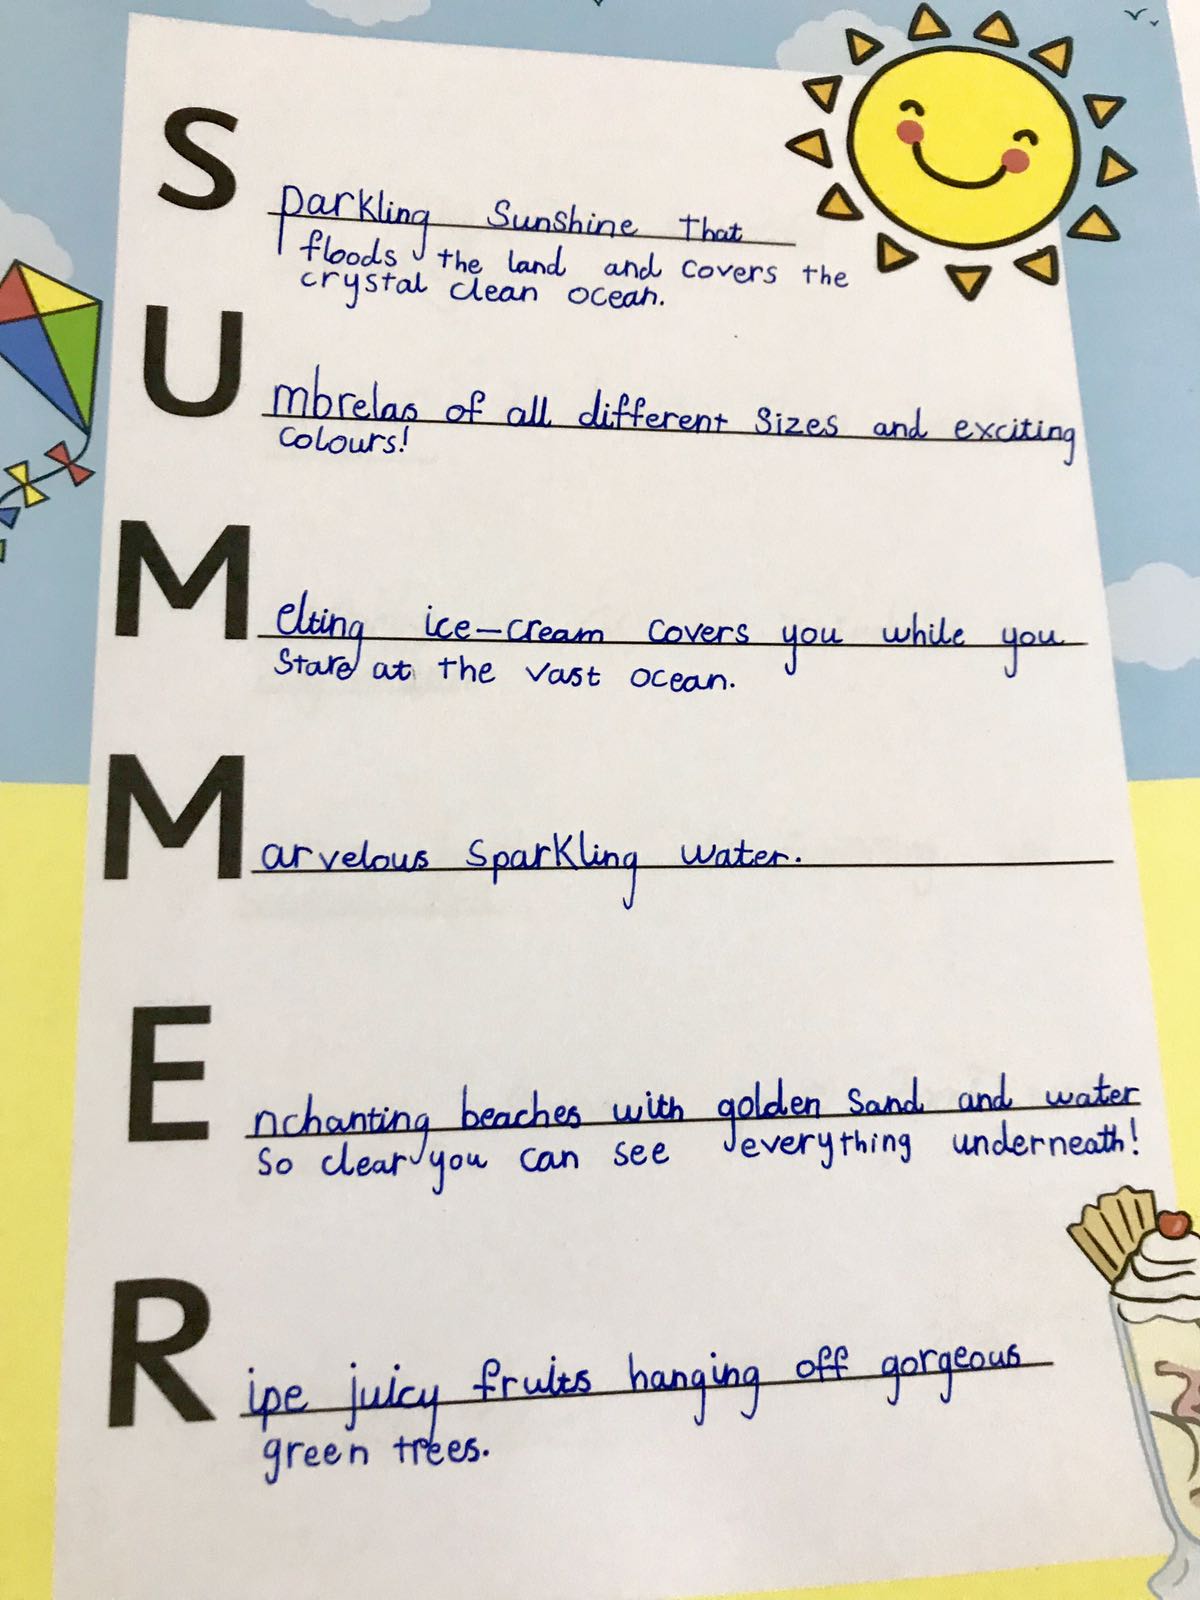 Sparkling Sunshine that
floods the land and covers the
crystal clean ocean.
Umbrelas of all different sizes and exciting
colours!
Melting ice-cream covers you while you
stare at the vast ocean.
Marvelous sparkling water.
Enchanting beaches with golden sand and water
so clear you can see everything underneath!
Ripe juicy fruits hanging off gorgeous
green trees.